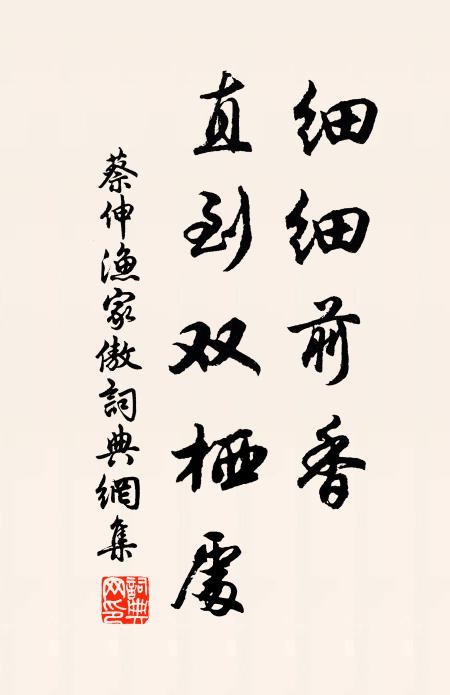 细细前香
直到双栖處
蔡伸渔家傲詞典網集
詞典網印